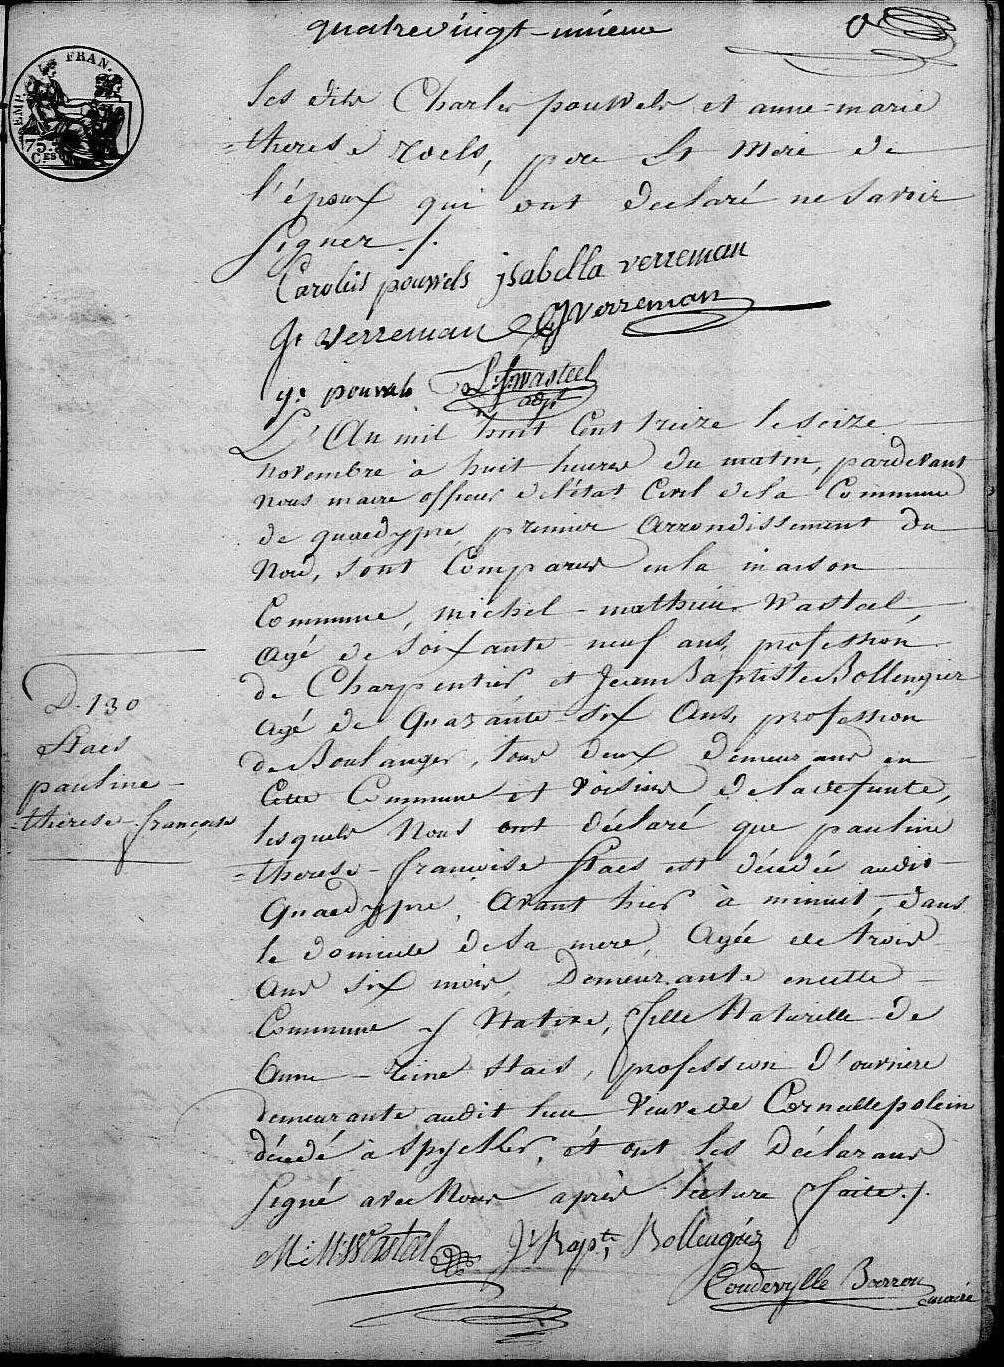 quatrevingt-unieme
EMP. FRAN.
75.
C.ES
les dits Charles pouwels et anne-marie
-therese roels, pere et mere de
l'époux qui ont declaré ne savoir
signer./.
Carolus pouwels isabella verreman
Js verreman verreman
pouwels wasteel
adjt
L'An mil huit Cent treize le seize
novembre à huit heures du matin, pardevant
nous maire officier del'état Civil dela Commune
de quaedypre, premier arrondissement du
Nord, sont Comparus enla maison
Commune, michel-mathieu Wastel,
agé de soixante-neuf ans, profession
de Charpentier, et Jean Baptiste Bollengier
agé de Quarante six Ans, profession
de Boulanger, tous deux demeurans en
Cette Commune et Voisins de la defunte,
lesquels Nous ont déclaré que pauline
-therese-francoise Staes est décedée audit
Quaedypre, avant hier à minuit, dans
le domicile desa mere, Agée de trois
ans six mois, Demeurante encette
Commune y Native, fille Naturelle de
Anne-reine Staes, profession d'ouvriere
demeurante audit lieu Veuve de Corneille polein
décedé à Spycker, et ont les Déclarans
signé avec Nous après lecture faite./.
D. 130
Staes
pauline-
-thérese-francoise
M: M: Wastel Jn Bapte Bollengier
Coudevylle Barron
maire